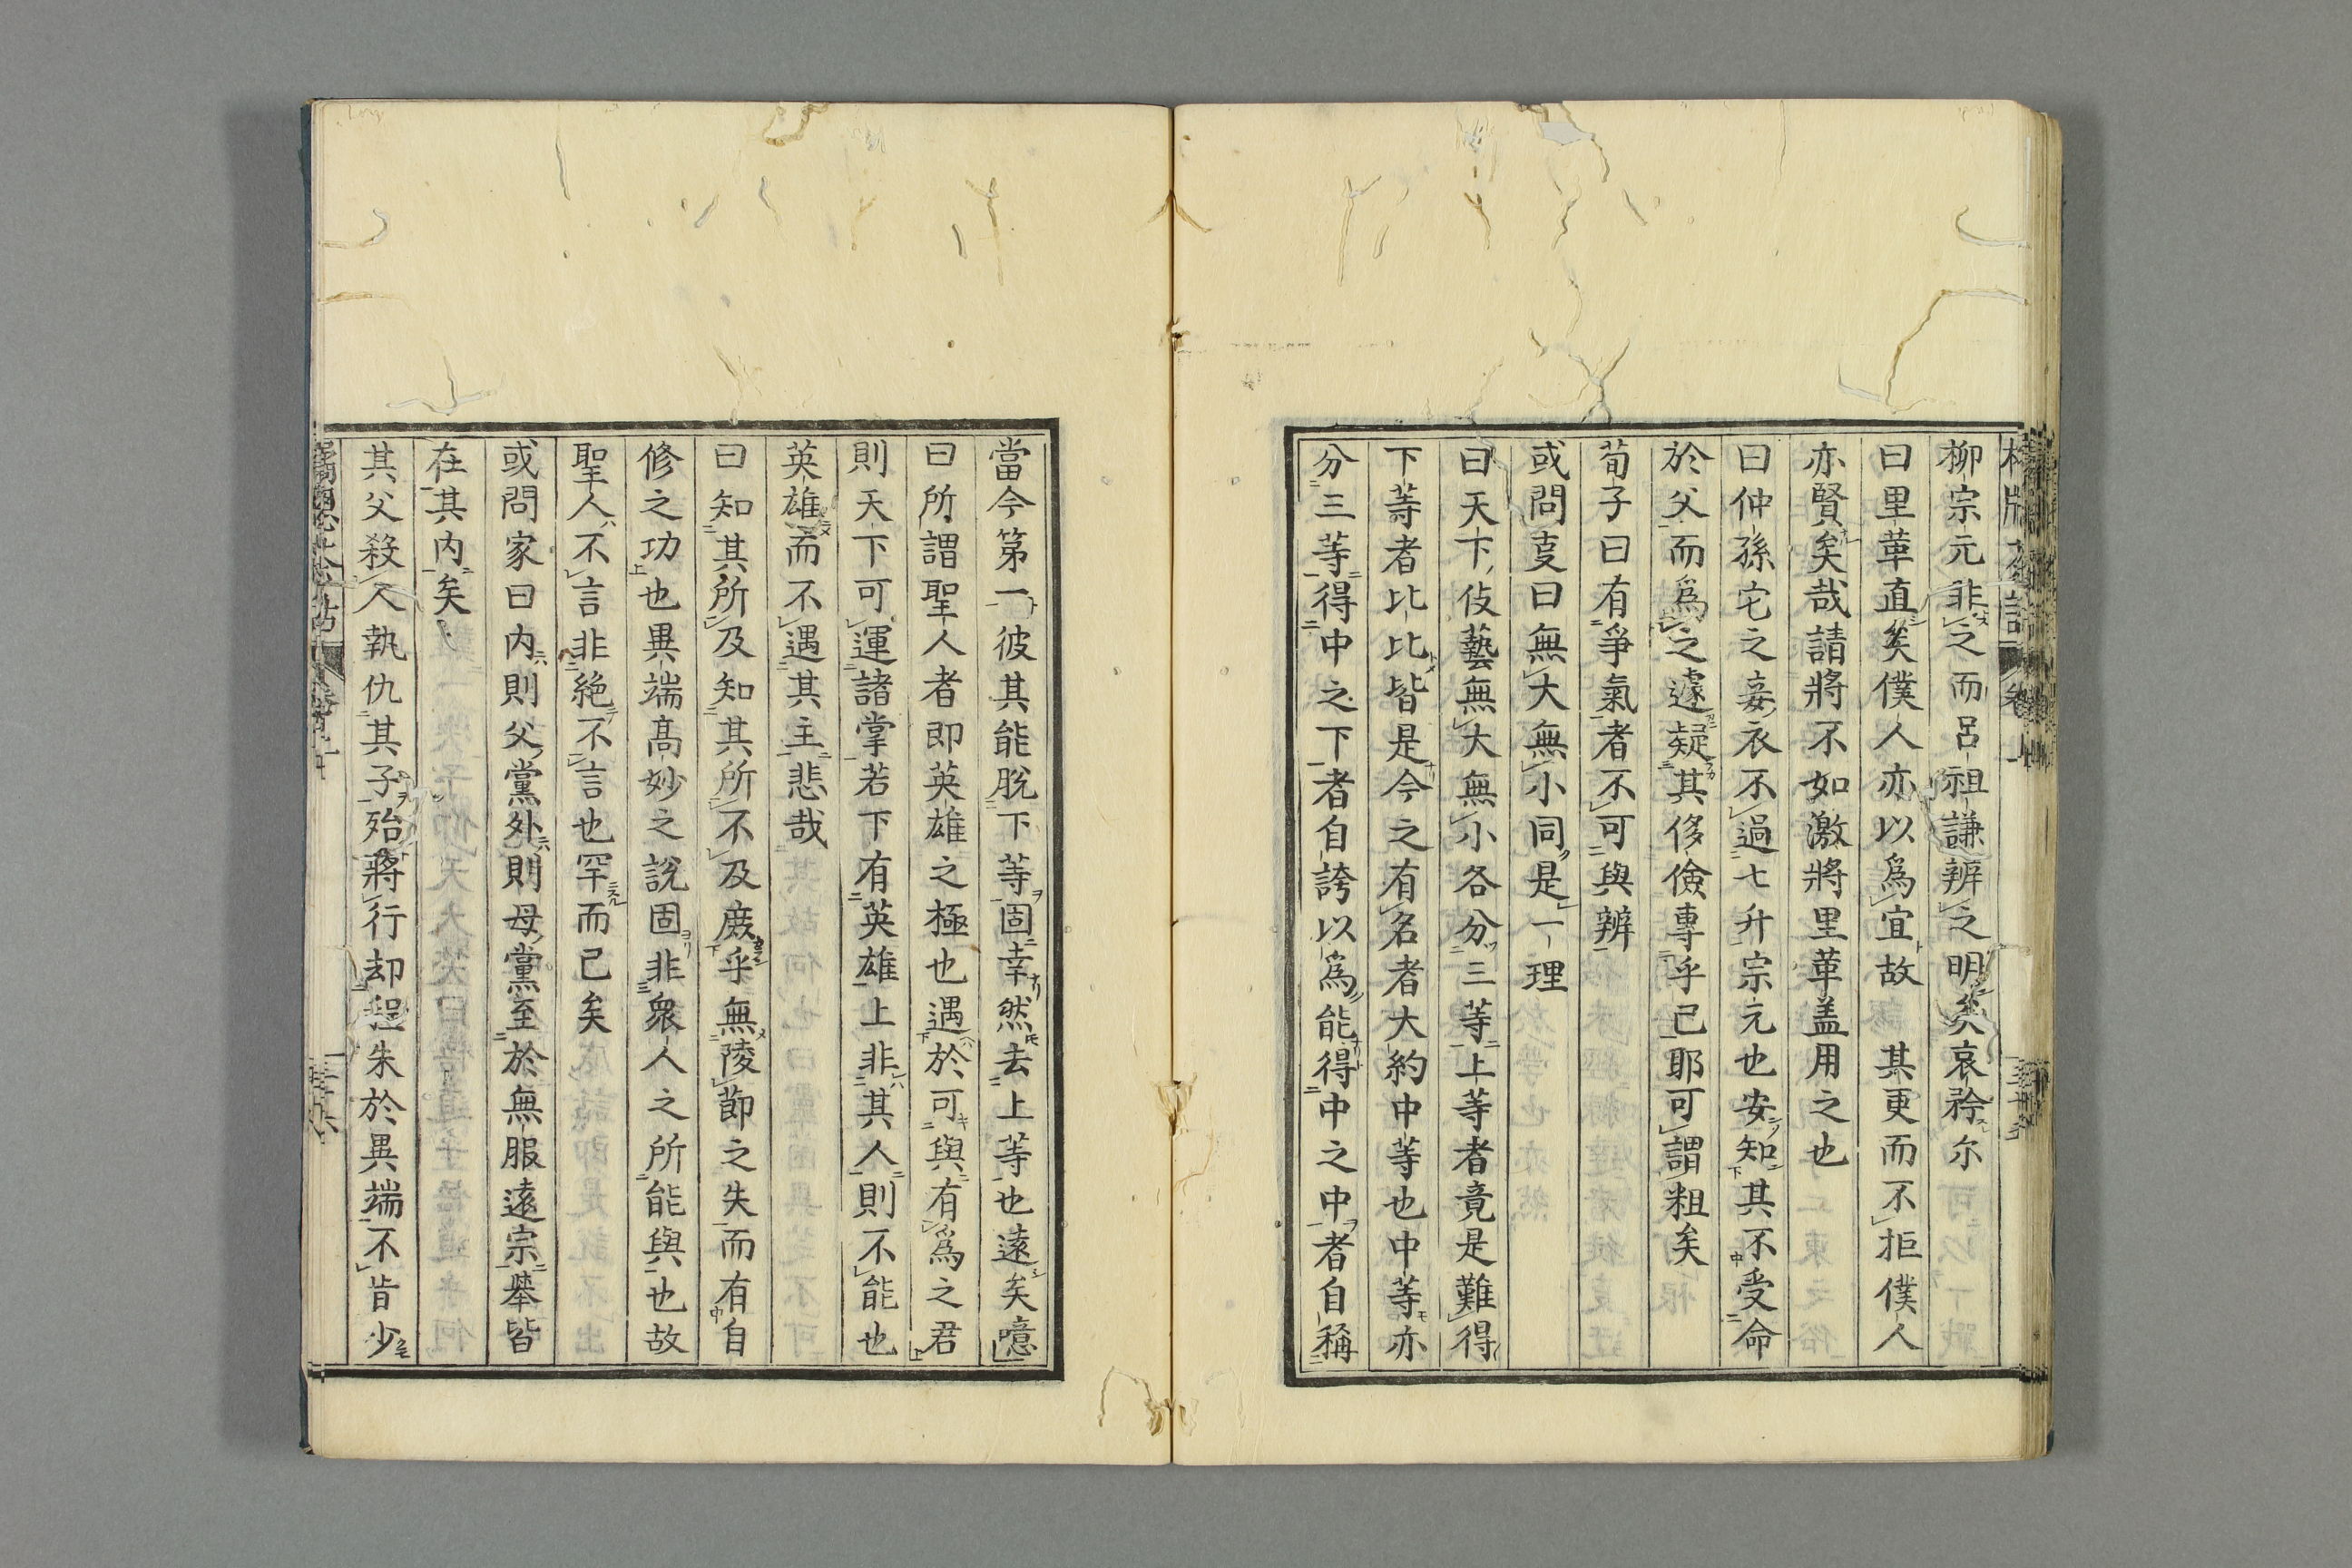 柳宗元非之而呂祖謙辨之明矣哀矜尓
曰里革直矣僕人亦以爲宜故其更而不拒僕人
亦賢矣哉請將不如激將里革盖用之也
曰仲孫宅之妾衣不過七升宗元也安知其不受命
於父而爲之遽疑其侈儉專乎已耶可謂粗矣
荀子曰有爭氣者不可與辨
或問叓曰無大無小同是一理
曰天下伎藝無大無小各分三等上等者竟是難得
下等者比比皆是今之有名者大約中等也中等亦
分三等得中之下者自誇以爲能得中之中者自稱
當今第一彼其能脫下等固幸然去上等也遠矣噫
曰所謂聖人者即英雄之極也遇於可與有爲之君
則天下可運諸掌若下有英雄上非其人則不能也
英雄而不遇其主悲哉
曰知其所及知其所不及庶乎無陵節之失而有自
修之功也異端高妙之說固非衆人之所能與也故
聖人不言非絶不言也罕而已矣
或問家曰内則父黨外則母黨至於無服遠宗舉皆
在其内矣
其父殺人執仇其子殆蔣行却程朱於異端不肯少